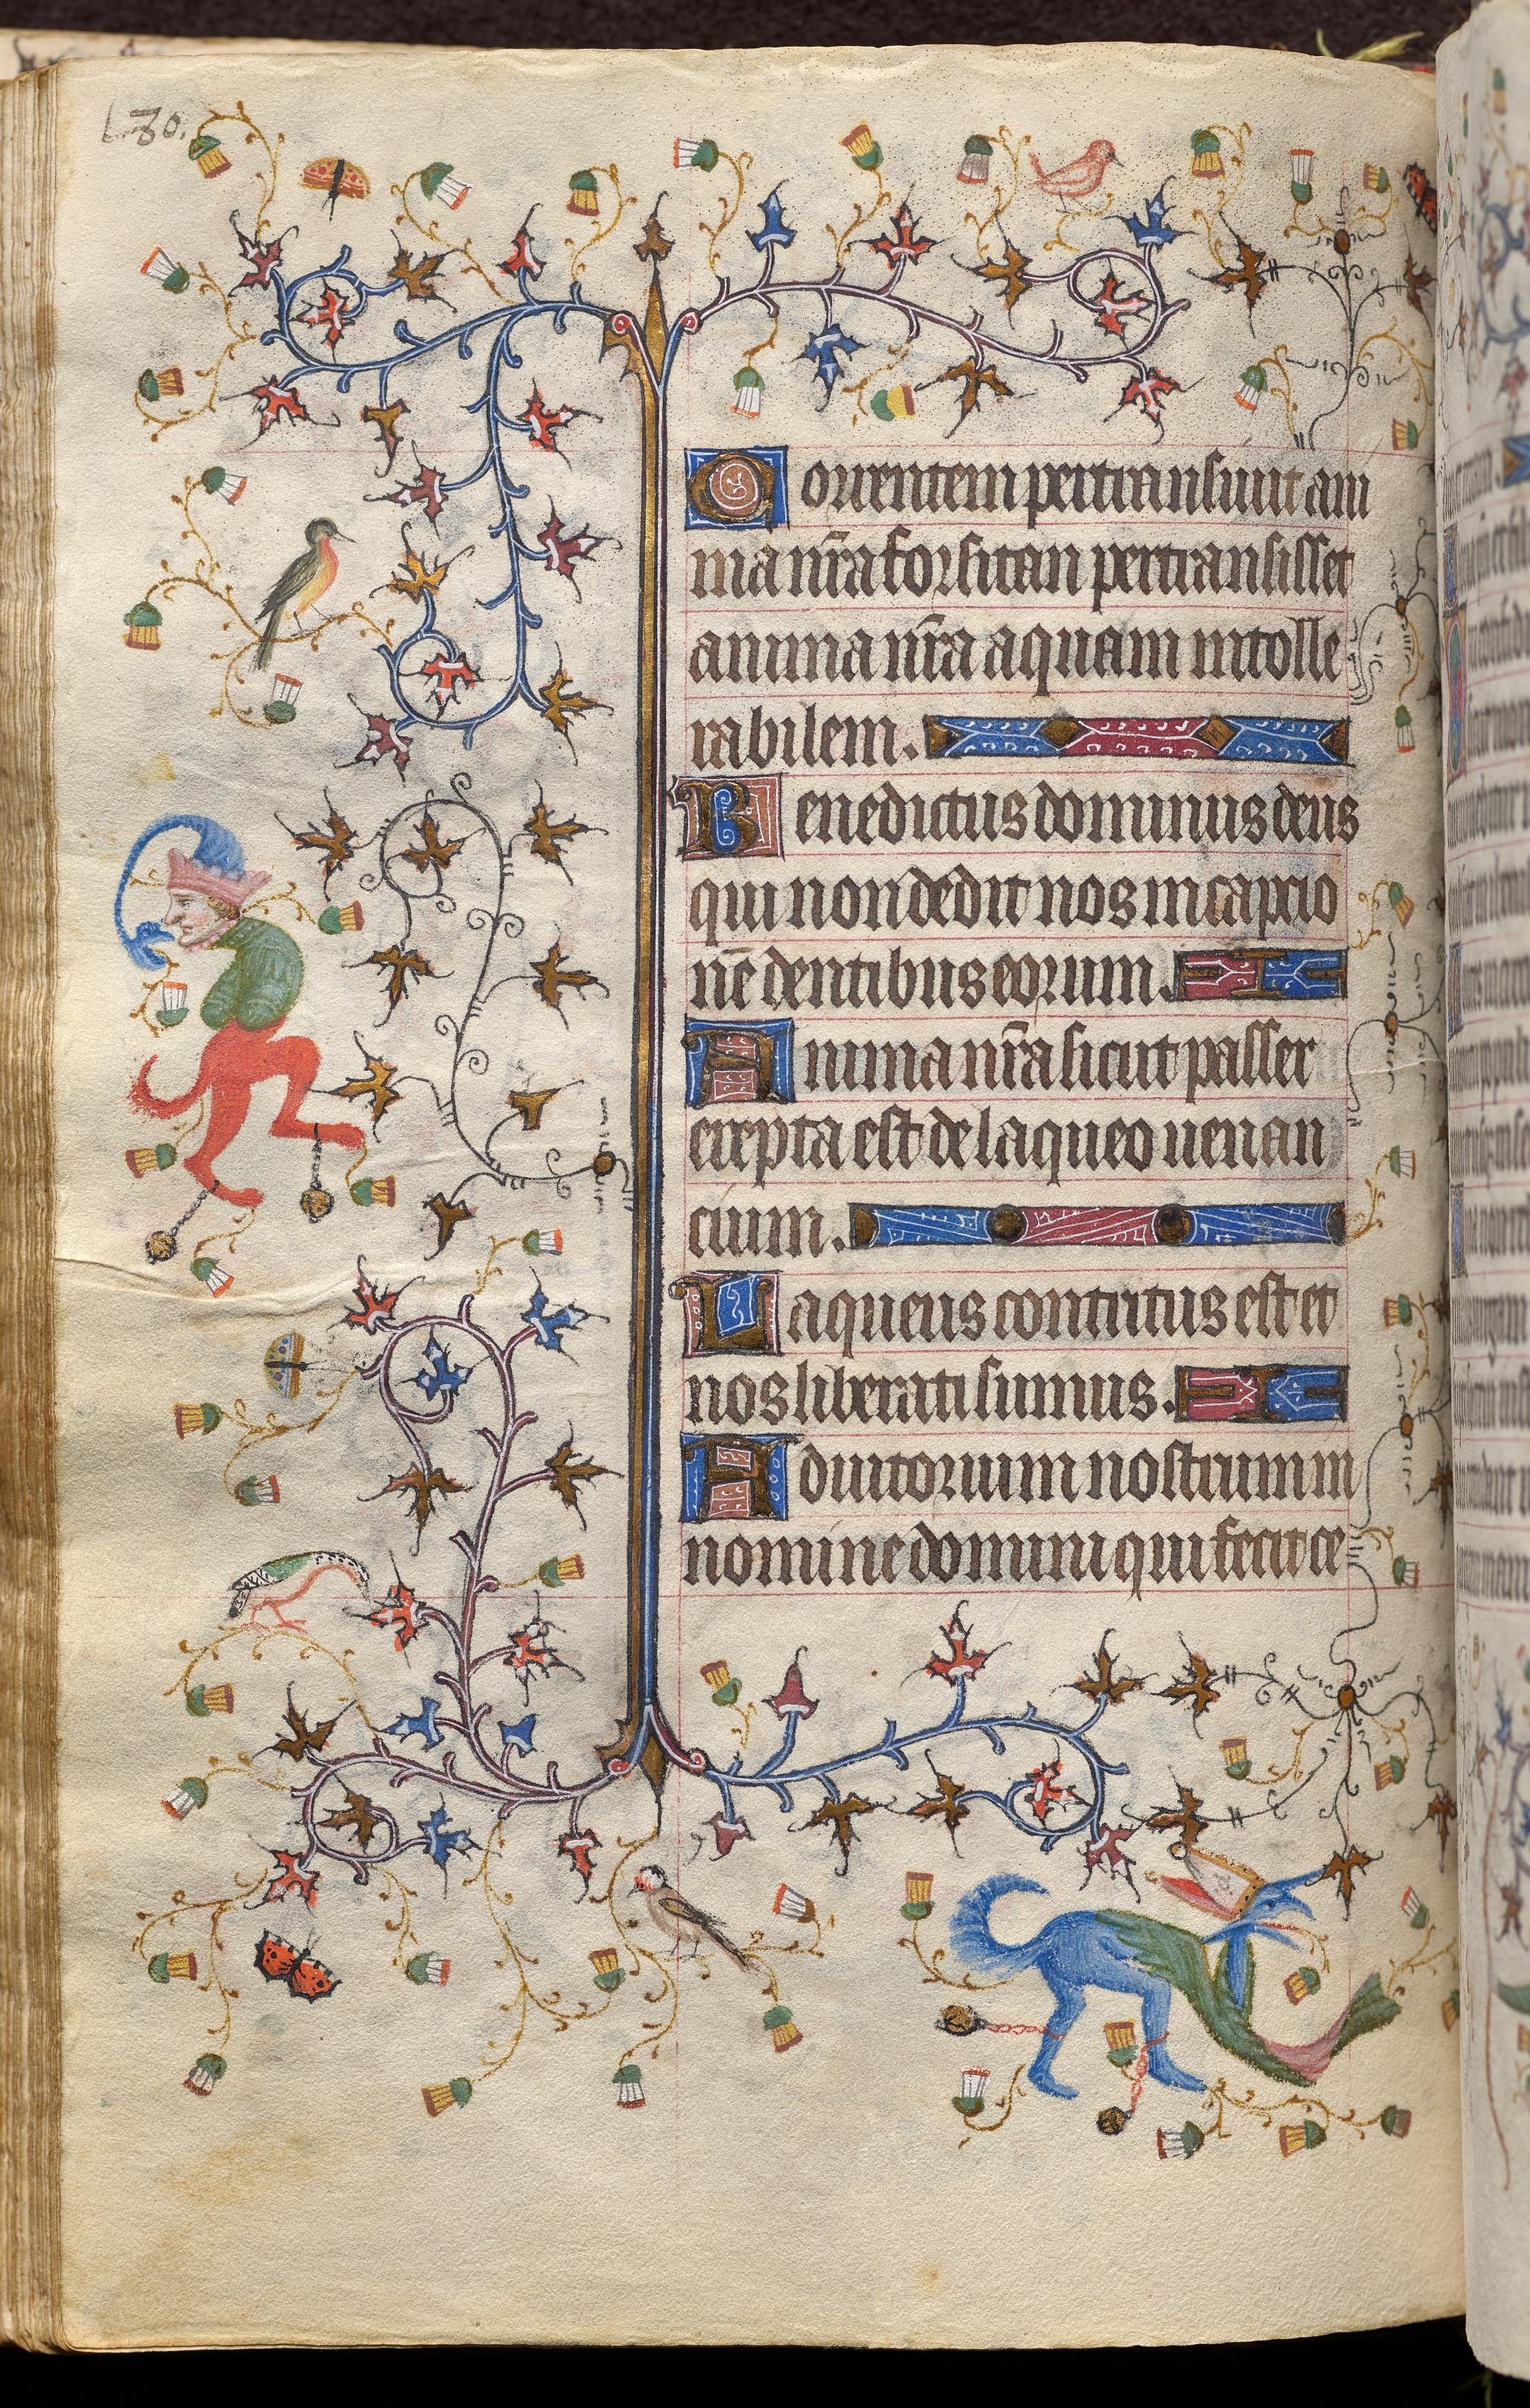 L. 30.
Torrentem pertransiuit ani
ma nr̄a forsitan pertransisset
anima nr̄a aquam intolle
rabilem.
Benedictus dominus deus
qui non dedit nos in captio
nē dentibus eorum.
Anima nr̄a sicut passer
erepta est de laqueo uenan
cium.
Laqueus contritus est et
nos liberati sumus.
Adiutorium nostrum in
nomine domini qui fecit ce